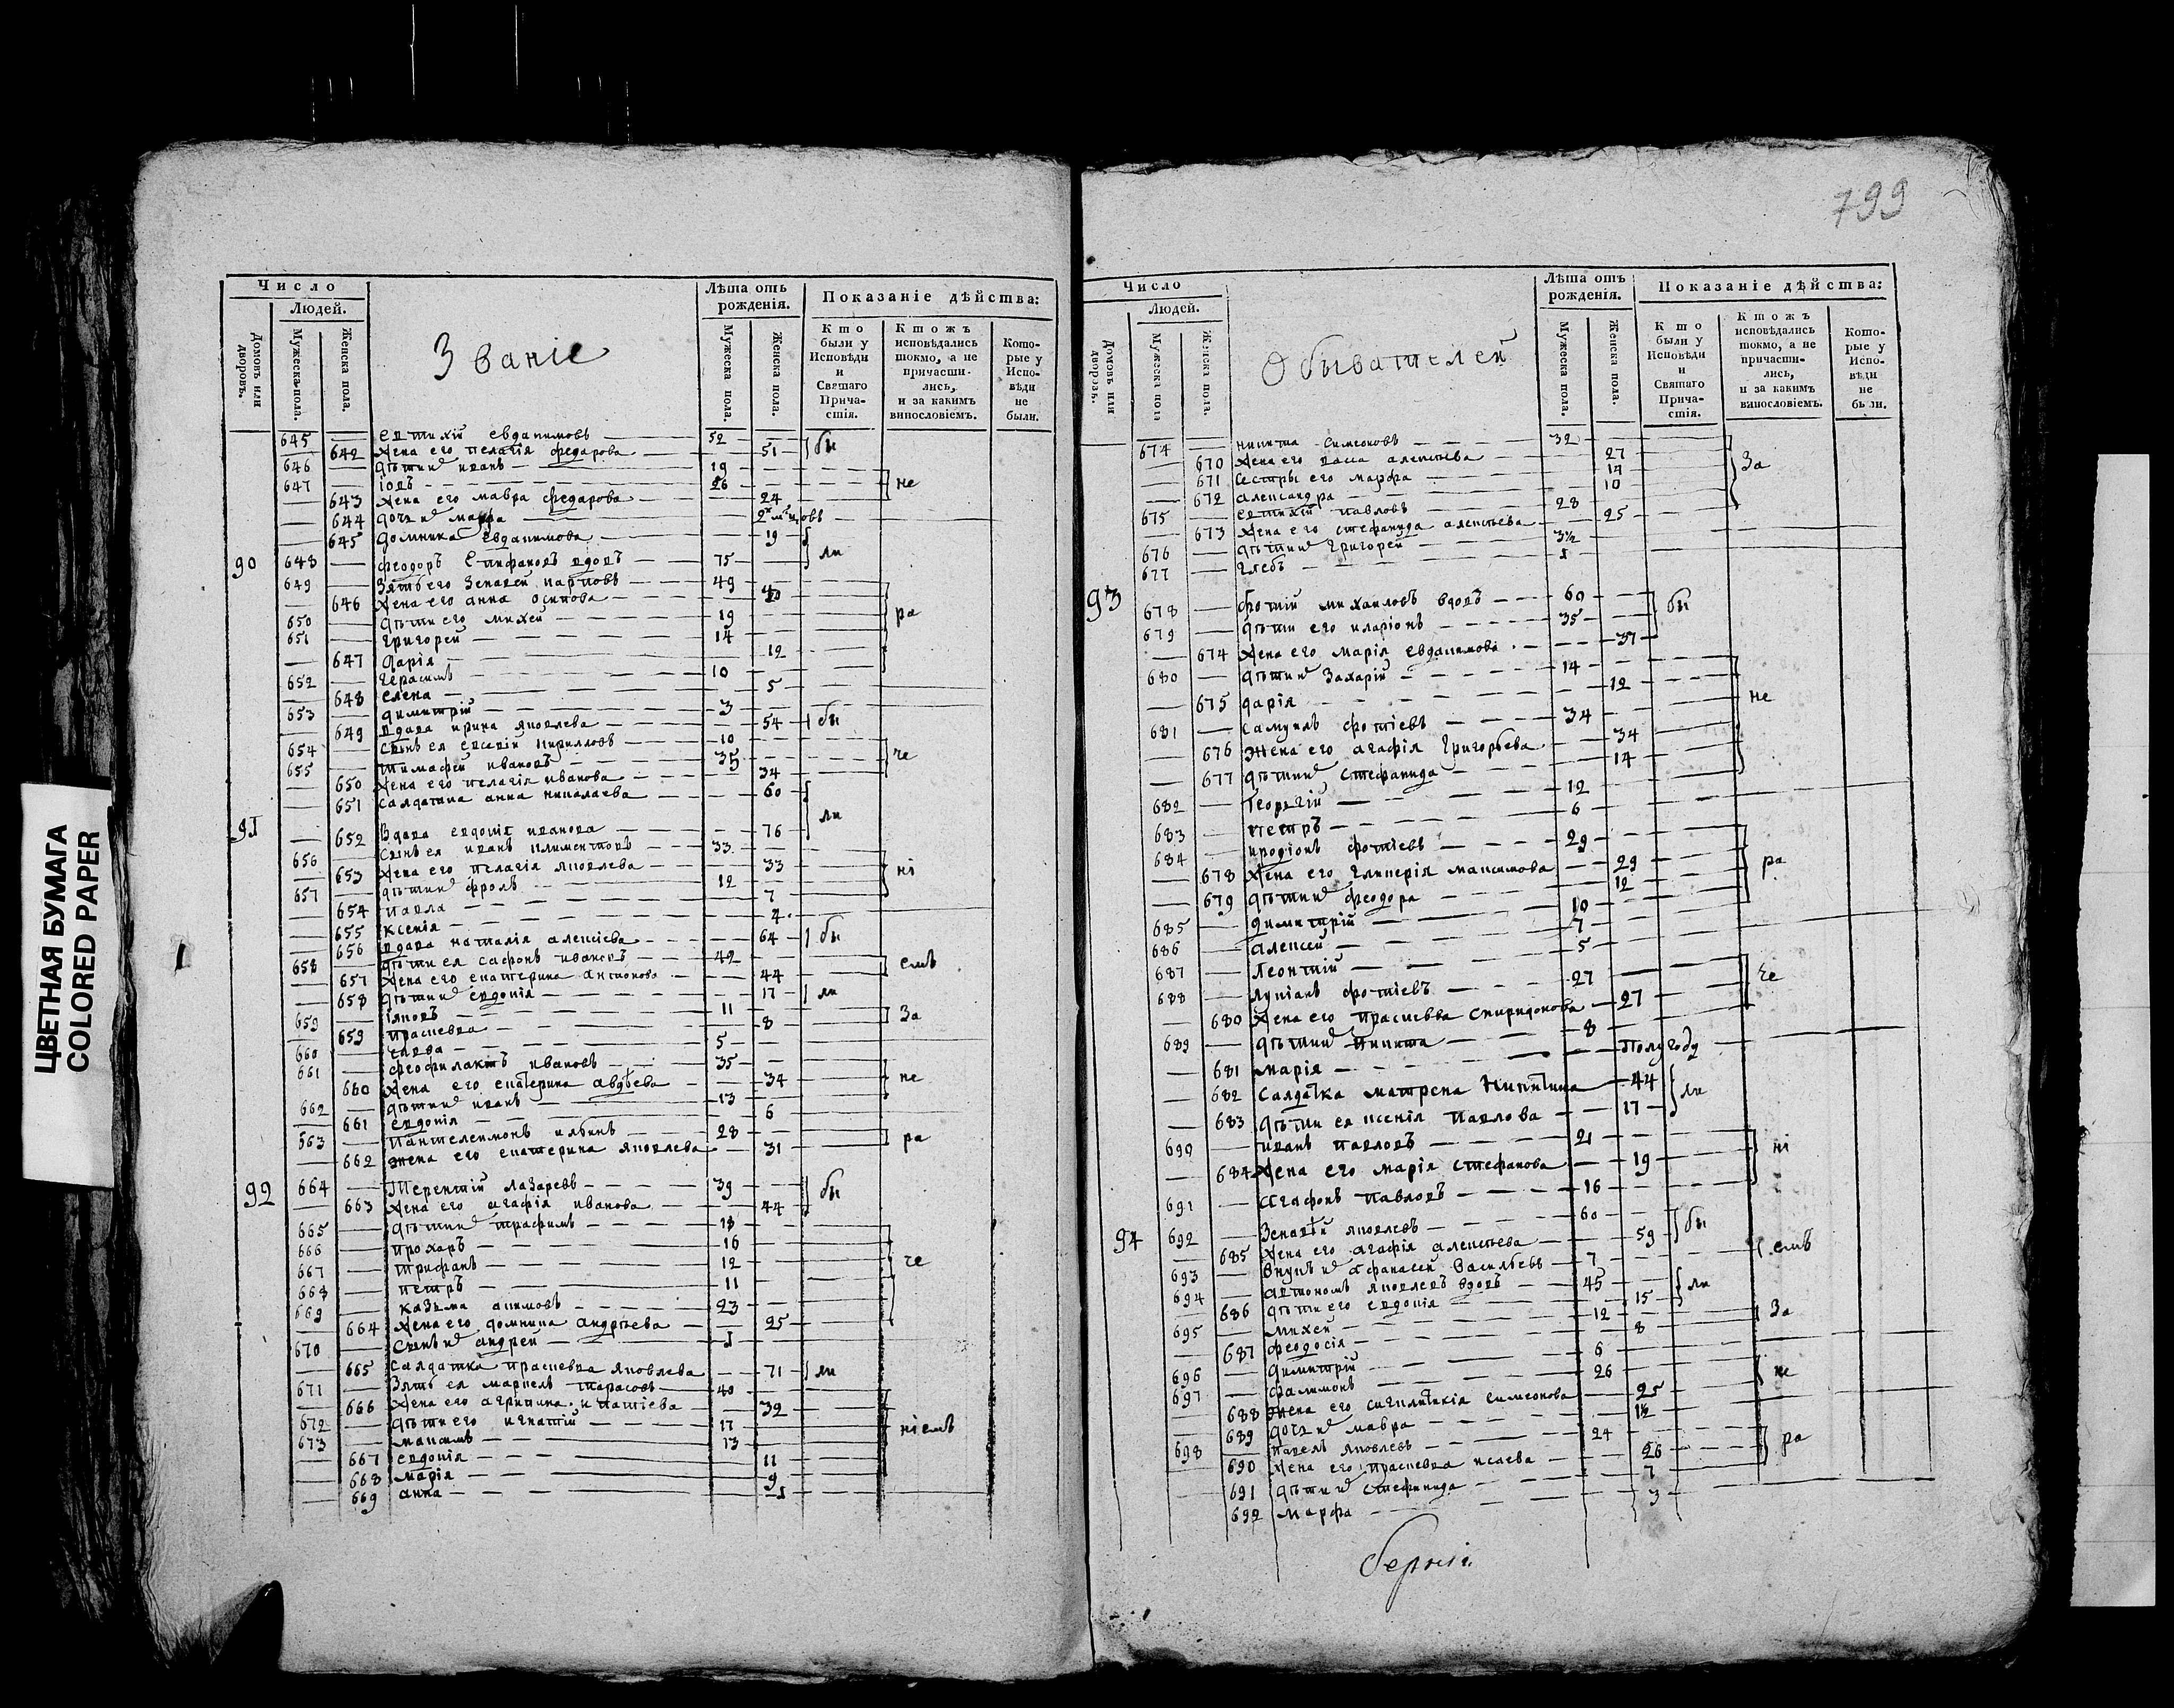 799
ЦВЕТНАЯ БУМАГА
COLORED PAPER
Число
Людей.
Домовъ или дворовъ.
Мужеска пола.
Женска пола.
Званіе
Лѣта отъ рожденія.
Мужеска пола.
Женска пола.
Показаніе дѣйства:
Кто были у Исповѣди и Святаго Причастія.
Ктожъ исповѣдались токмо, а не причастились, и за какимъ винословіемъ.
Которые у Исповѣди не были.
645 евтихій евдакимовъ 52
642 жена его пелагія федарова 51 бы
646 дѣти иванъ 19
647 іовъ 26 не
643 жена его мавра федарова 24
644 дочь марфа
645 домника евдакимова 19
90 648 феодоръ Епифановъ вдовъ 75 ли
649 Зять его Зеновей карповъ 49
646 жена его анна осипова 40
650 дѣти его михей 19 ра
651 григорей 14
647 дарія 12
652 герасимъ 10
648 елена 5
653 димитрій 3
649 вдова ирина яковлева 54 бы
654 сынъ ея евсевій кирилловъ 10
655 тимафей ивановъ 35 че
650 жена его пелагія иванова 34
651 салдатка анна николаева 60
91 652 Вдова евдокія иванова 76 ли
656 сынъ ея иванъ климентовъ 33
653 жена его пелагія яковлева 33 ні
657 дѣти фролъ 12
654 павла 7
655 ксенія 4
656 вдова наталія алексіева 64 бы
658 дѣти ея сафонъ ивановъ 42
657 жена его екатерина антонова 44 емъ
658 дѣти евдокія 17 ли
659 іяковъ 11
659 прасковва 8 За
660 савва 5
661 феофилактъ ивановъ 35
660 жена его екатерина авдѣева 34 не
662 дѣти иванъ 13
661 евдокія 6
563 пантелеимонъ ильинъ 28
662 жена его екатерина яковлева 31 ра
92 664 Терентій лазаревъ 39
663 жена его агафія иванова 44 бы
665 дѣти трафимъ 18
666 прохаръ 16
667 трифанъ 12 че
668 петръ 11
669 казьма акимовъ 23
664 жена его домника андрѣева 25
670 сынъ андрей 1
665 салдатка прасковва яковлева 71 ли
671 Зять ея маркелъ тарасовъ 40
666 жена его агрипина игнатіева 32
672 дѣти его игнатій 17 ніемъ
673 максимъ 13
667 евдокія 11
668 марія 9
669 анна 1
Число
Людей.
Домовъ или дворовъ.
Мужеска пола
Женска пола.
Обывателей
Лѣта отъ рожденія.
Мужеска пола.
Женска пола.
Показаніе дѣйства:
Кто были у Исповѣди и Святаго Причастія.
Ктожъ исповѣдались токмо, а не причастились, и за какимъ винословіемъ.
Которые у Исповѣди не были.
674 никита симеоновъ 32
670 жена его васса алексѣева 27 За
671 Сестры его марфа 14
672 александра 10
675 евтихій павловъ 28
673 жена его стефанида алексѣева 25
676 дѣти григорей 3½
677 глебъ 1
93 678 фотій михаиловъ вдовъ 60 бы
679 дѣти его иларіонъ 35
674 жена его марія евдакимова 37
680 дѣти Захарій 14
675 дарія 12 не
681 самуилъ фотіевъ 34
676 жена его агафія григорьева 34
677 дѣти стефанида 14
682 георгій 12
683 петръ 6
684 иродіонъ фотіевъ 29
678 жена его гликерія максимова 29 ра
679 дѣти феодора 12
685 димитрій 10
686 алексей 7
687 леонтій 5
688 лукіанъ фотіевъ 27 че
680 жена его прасковва спиридонова 27
689 дѣти никита 8
681 марія полугоду
682 Салдатка матрена никитина 44 ли
683 дѣти ея ксенія павлова 17
690 иванъ павловъ 21
684 жена его марія стефанова 19 ні
691 агафонъ павловъ 16
94 692 Зеновій яковлевъ 60
685 жена его агафія алексѣева 59 бы
693 внукъ афанасей васильевъ 7 емъ
694 автономъ яковлевъ вдовъ 45 ли
686 дѣти его евдокія 15
695 михей 12 За
687 феодосія 8
696 димитрій 6
697 филимонъ 26 не
688 жена его сигклитикія симеонова 25
689 дочь мавра
698 павелъ яковлевъ 24
690 жена его прасковва исаева 26 ра
691 дѣти стефанида 7
692 марфа 3